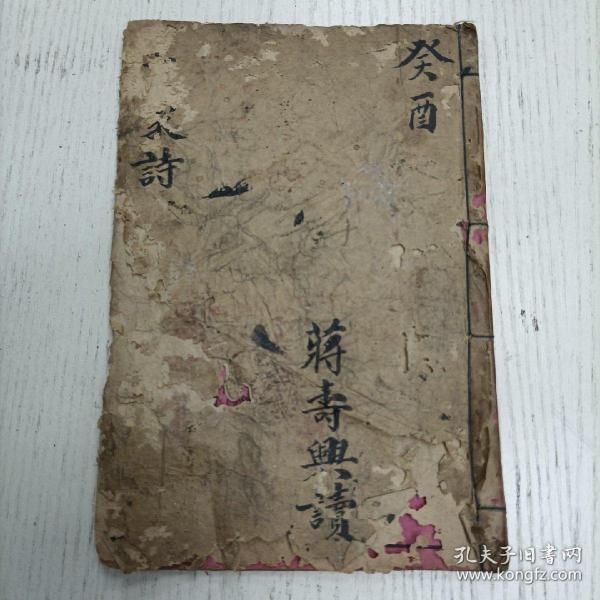 癸酉
蔣壽興讀
家詩
孔夫子旧书网
www.kongfz.com